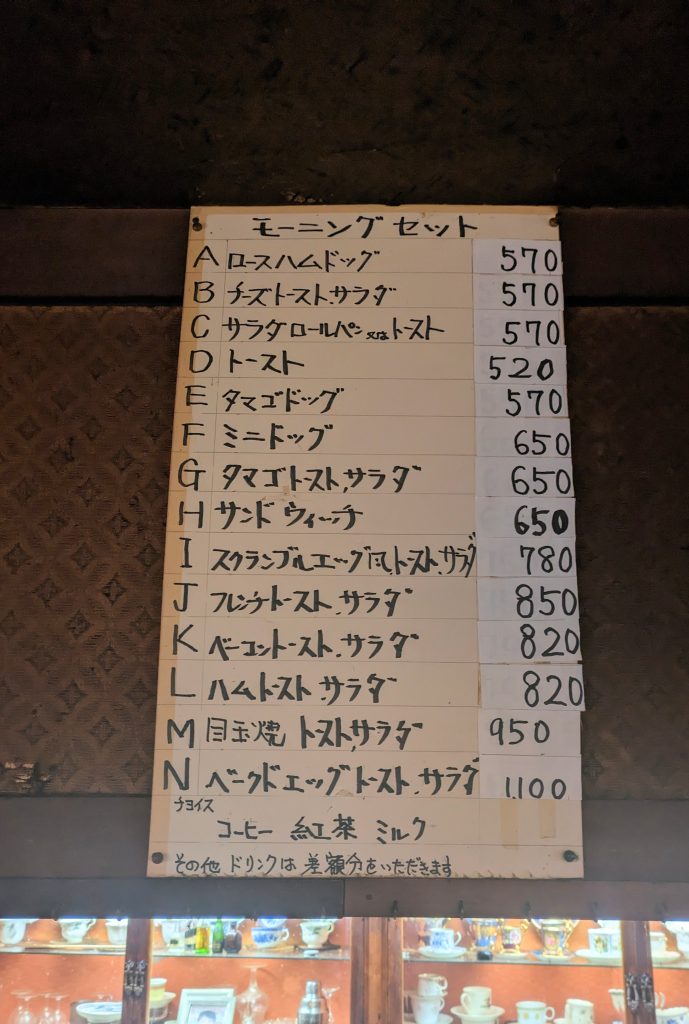 モーニング セット
A ロースハムドッグ 570
B チーズトースト.サラダ 570
C サラダ ロールパン 又は トースト 570
D トースト 520
E タマゴドッグ 570
F ミニドッグ 650
G タマゴトースト.サラダ 650
H サンド ウィーチ 650
I スクランブルエッグ風.トースト.サラダ 780
J フレンチトースト.サラダ 850
K ベーコントースト.サラダ 820
L ハムトースト サラダ 820
M 目玉焼 トースト.サラダ 950
N ベークドエッグトースト.サラダ 1,100
チョイス
コーヒー 紅茶 ミルク
その他 ドリンクは 差額分をいただきます